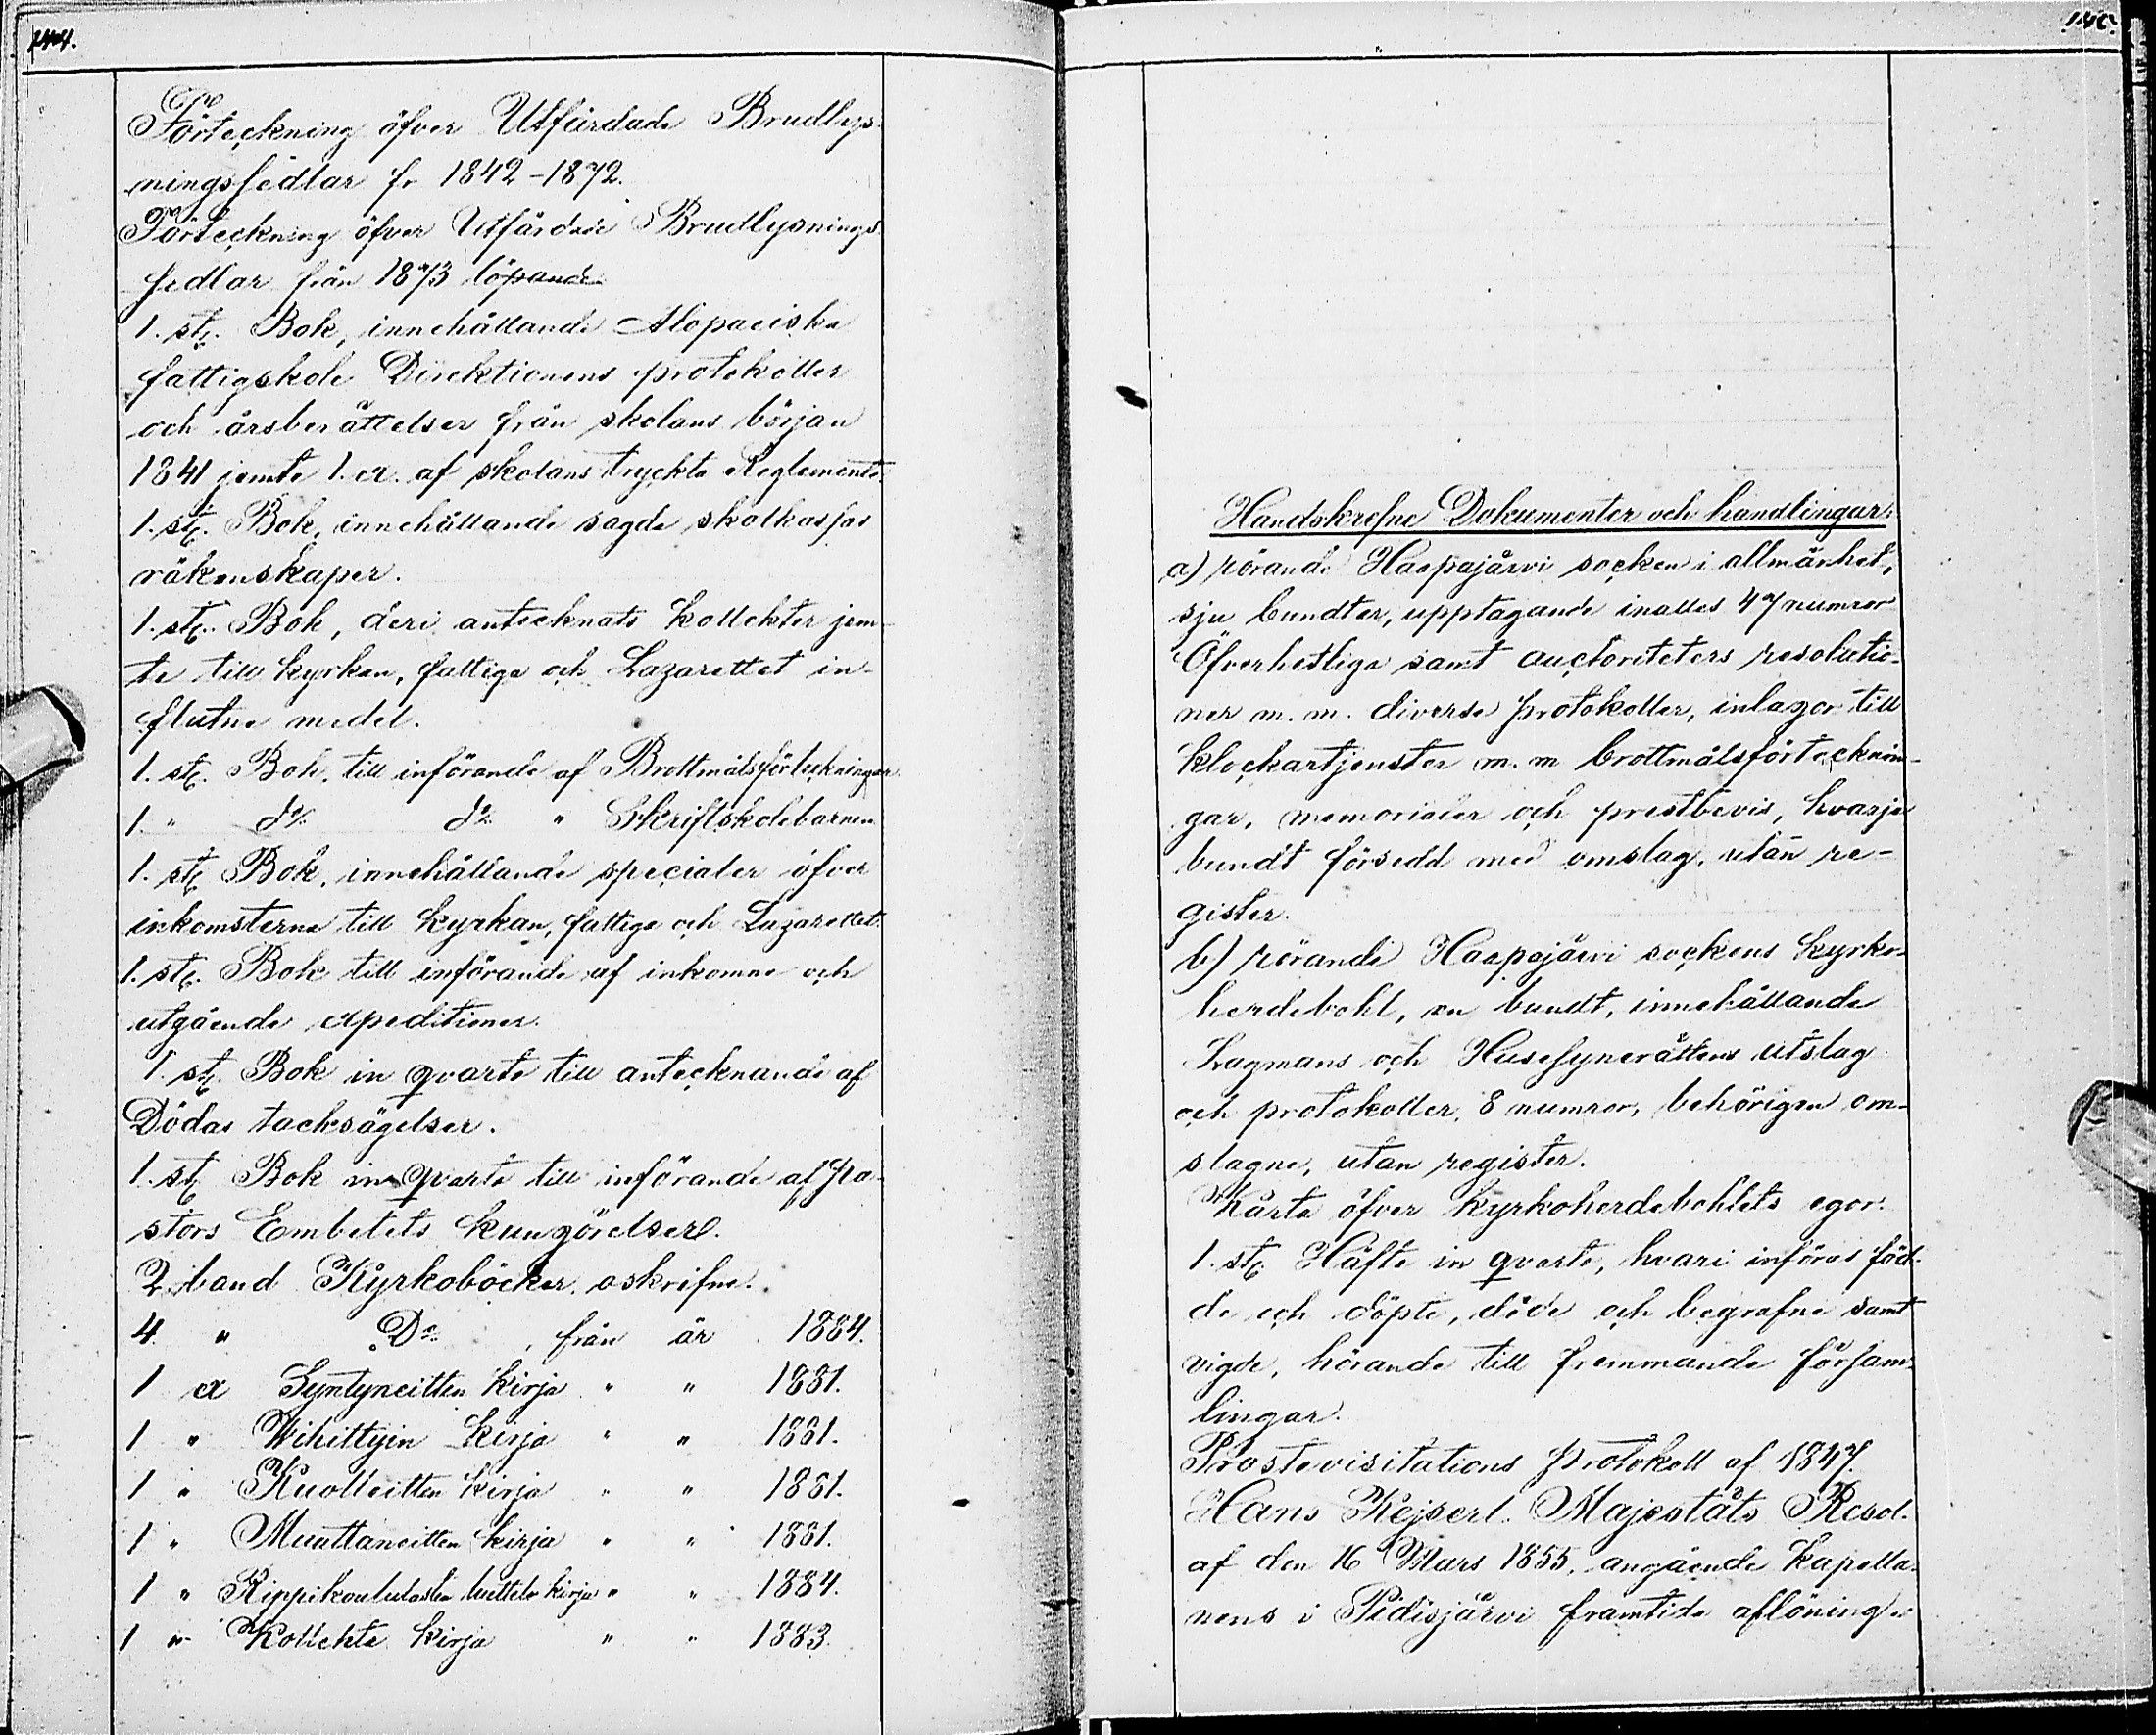 144.
Förteckning öfver Utfärdade Brudlys-
ningssedlar fr 1842-1872.
Förteckning öfver Utfärdade Brudlysnings-
sedlar från 1873 löpande
1. st. Bok, innehållande Alopaeiska
fattigskole Direktionens protokoller
och årsberättelser från skolans början
1841 jemte 1. ex. af skolans tryckta Reglemente.
1. st. Bok, innehållande sagde skolkassas
räkenskaper.
1. st. Bok, deri antecknats Kollekter jem-
te till kyrkan, fattiga och Lazarettet in-
flutne medel.
1. st. Bok, till införande af Brottmålsförteckningar
1. " do do " Skriftskolebarnen
1. st. Bok, innehållande specialer öfver
inkomsterna till kyrkan, fattige och Lazarettet.
1. st. Bok till införande af inkomne och
utgående expeditioner.
1. st. Bok in qvarto till antecknande af
Dödas tacksägelser.
1. st. Bok in qvarto till införande af Pa-
stors Embetets kungörelser.
2 band Kyrkoböcker, oskrifne.
4. " Do , från år 1884.
1 ex Syntyneitten kirja " " 1881.
1 " Wihittyin kirja " " 1881.
1 " Kuolleitten kirja " " 1881.
1 " Muuttaneitten kirja " " 1881.
1 " Rippikoululasten luettelo kirja " " 1884.
1 " Kollekta kirja " " 1883.
Handskrefne Dokumenter och handlingar:
a) rörande Haapajärvi socken i allmänhet,
sju bundter, upptagande inalles 47 numror
Öfverhetliga samt auctoriteters resolutio-
ner m. m. diverse protokoller, inlagor till
klockartjenster m. m brottmålsförtecknin-
gar, memorialer och prestbevis, hvarje
bundt försedd med omslag, utan re-
gister.
b) rörande Haapajärvi sockens kyrko-
herdebohl, en bundt, innehållande
Lagmans och Husesynerättens utslag
och protokoller, 8 numror, behörigen om-
slagne, utan register.
Karta öfver kyrkoherdebohlets egor.
1. st. Häfte in qvarto, hvari införas föd-
de och döpte, döde och begrafne samt
vigde, hörande till fremmande försam-
lingar.
Prostevisitations protokoll af 1847.
Hans Kejserl. Majestäts Resol.
af den 16 Mars 1855, angående Kapella-
nens i Pidisjärvi framtida aflöning.